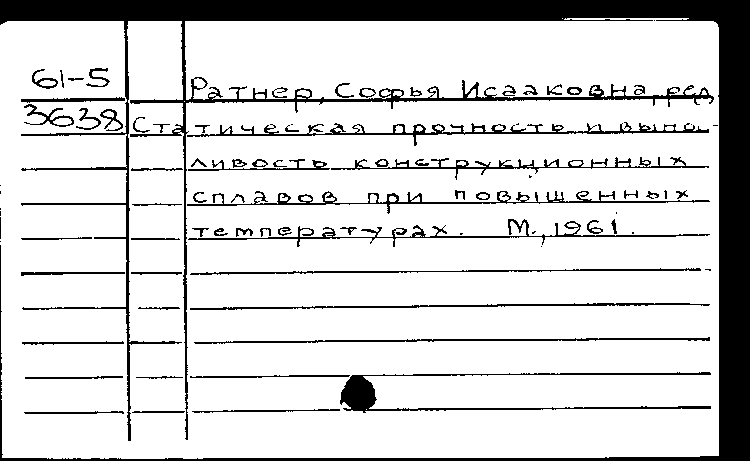 61-5
Ратнер, Софья Исааковна, ред.
3638
Статическая прочность и вынос-
ливость конструкционных
сплавов при повышенных
температурах. М., 1961.